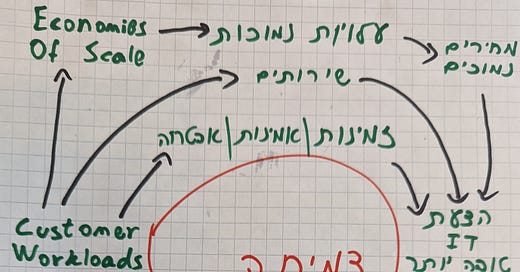 Economies
Of Scale
עלויות נמוכות
מחירים
נמוכים
שירותים
זמינות | אמינות | אבטחה
Customer
Workloads
הצעת
IT
טובה יותר
צמיחה